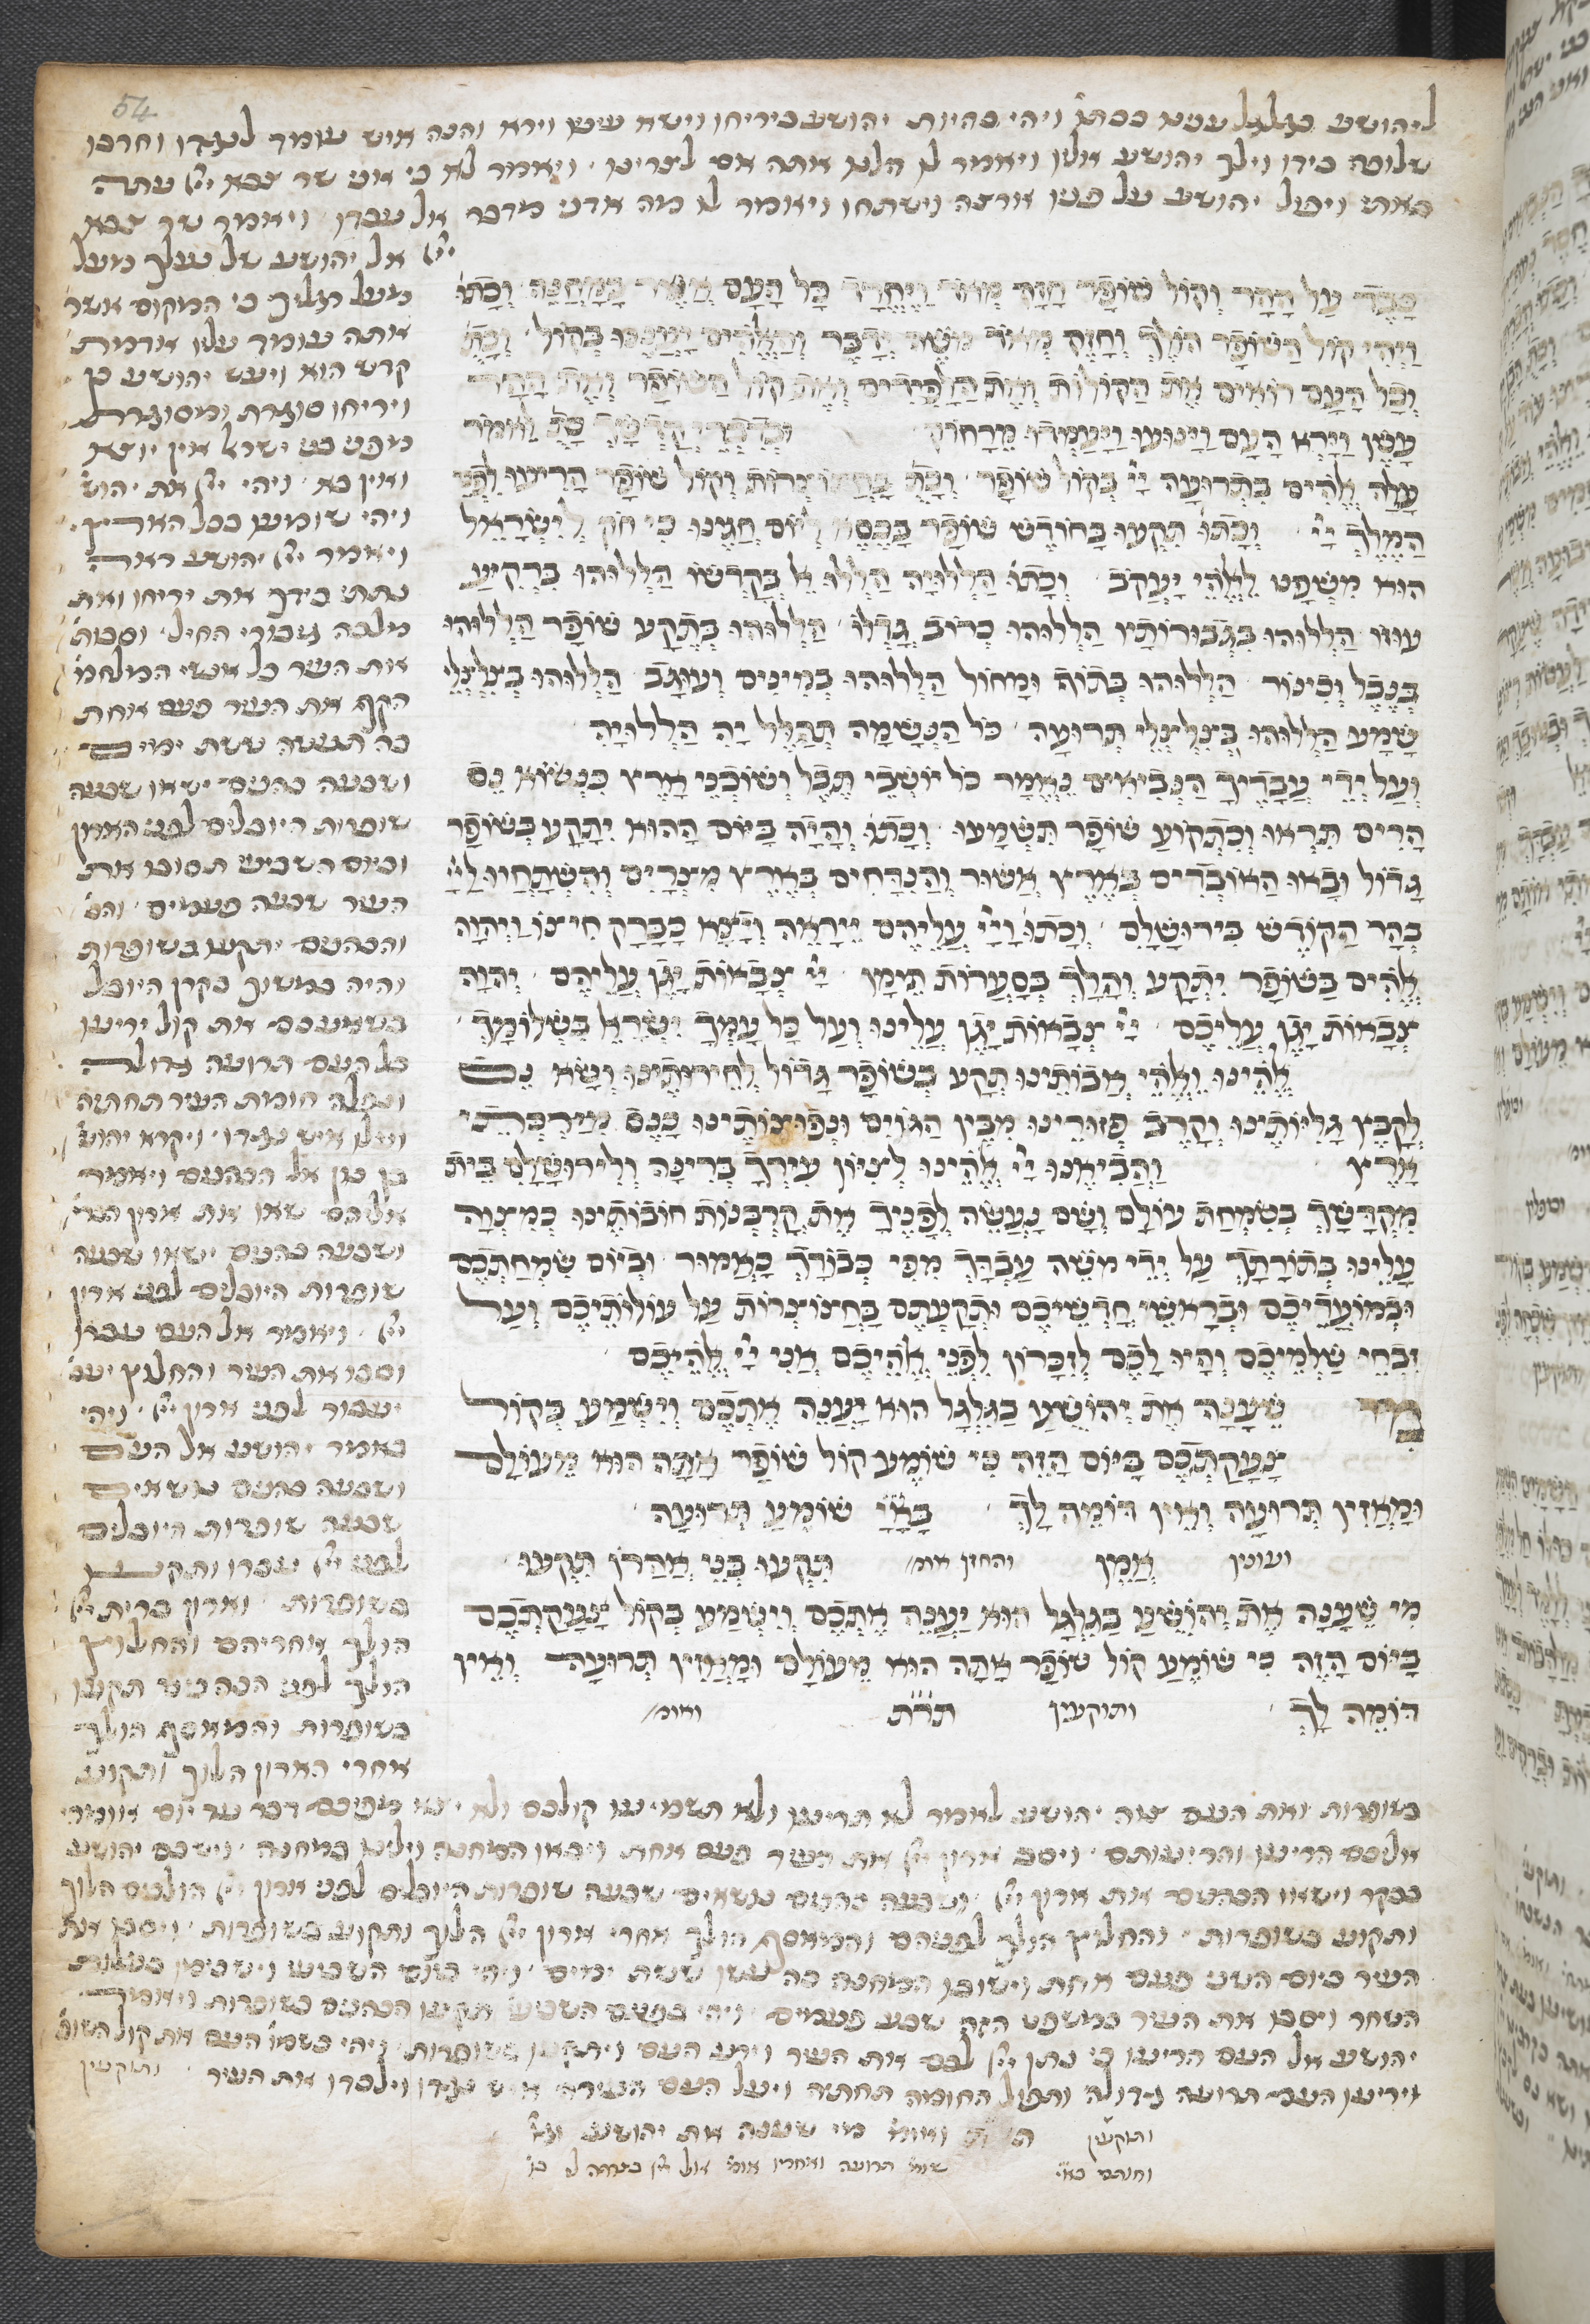 54
ליהושע בגלגל ענינא ככתו ויהי בהיות יהושע ביריחו וישא עיניו וירא והנה איש עומד לנגדו וחרבו
שלופה בידו וילך יהושע אליו ויאמר לו הלנו אתה אם לצרינו ויאמר לא כי אני שר צבא יי עתה
באתי ויפול יהושע על פניו ארצה וישתחו ויאמר לו מה אדני מדבר אל עבדו ויאמר שר צבא
יי אל יהושע של נעלך מעל
כבד על ההר וקול שופר חזק מאד ויחרד כל העם אשר במחנה וכתו
ויהי קול השופר הולך וחזק מאוד משה ידבר והאלהים יעננו בקול וכתו
וכל העם רואים את הקולות ואת הלפידים ואת קול השופר ואת ההר
עשן וירא העם וינועו ויעמדו מרחוק ובדברי קדשך כת לאמר
עלה אלהים בתרועה יי בקול שופר וכתו בחצוצרות וקול שופר הריעו לפני
המלך יי וכתו תקעו בחורש שופר בכסא ליום חגינו כי חק לישראל
הוא משפט לאלהי יעקב וכתו הללויה הללו אל בקדשו הללוהו ברקיע
עוזו הללוהו בגבורותיו הללוהו כרוב גדלו הללוהו בתקע שופר הללוהו
בנבל וכינור הללוהו בתוף ומחול הללוהו במינים ועוגב הללוהו בצלצלי
שמע הללוהו בצלצלי תרועה כל הנשמה תהלל יה הללויה
ועל ידי עבדיך הנביאים נאמר כל יושבי תבל ושוכני ארץ כנשוא נס
הרים תראו וכתקוע שופר תשמעו וכתו והיה ביום ההוא יתקע בשופר
גדול ובאו האובדים בארץ אשור והנדחים בארץ מצרים והשתחוו ליי
בהר הקודש בירושלם וכתו ויי עליהם יראה ויצא כברק חיצו ויהוה
אלהים בשופר יתקע והלך בסערות תימן יי צבאות יגן עליהם יהוה
צבאות יגן עליכם יי צבאות יגן עלינו ועל כל עמך ישראל בשלומך
אלהינו ואלהי אבותינו תקע בשופר גדול לחירותינו ושא נס
לקבץ גליותינו וקרב פזורינו מבין הגוים ונפוצותינו כנס מירכתי
ארץ והביאנו יי אלהינו לציון עירך ברינה ולירושלם בית
מקדשך בשמחת עולם ושם נעשה לפניך את קרבנות חובותינו כמצוה
עלינו בתורתך על ידי משה עבדך מפי כבודך כאמור וביום שמחתכם
ובמועדיכם ובראשי חדשיכם ותקעתם בחצוצרות על עולותיכם ועל
זבחי שלמיכם והיו לכם לזכרון לפני אלהיכם אני יי אלהיכם
מי שענה את יהושע בגלגל הוא יענה אתכם וישמע בקול
צעקתכם ביום הזה כי שומע קול שופר אתה הוא מעולם
ומאזין תרועה ואין דומה לך באיי שומע תרועה
ועונין אמן והחזן אומ תקעו בני אהרן תקעו
מי שענה את יהושע בגלגל הוא יענה אתכם וישמע בקול צעקתכם
ביום הזה כי שומע קול שופר אתה הוא מעולם ומאזין תרועה ואין
דומה לך ותוקעין תרת ואומ
מעל רגליך כי המקום אשר
אתה עומד עליו אדמת
קדש הוא ויעש יהושע כן
ויריחו סוגרת ומסוגרת
מפני בני ישראל אין יוצא
ואין בא ויהי יי את יהוש
ויהי שומעו בכל הארץ
ויאמר יי יהושע ראה
נתתי בידך את יריחו ואת
מלכה גבורי החיל וסבות
את העיר כל אנשי המלחמ
הקף את העיר פעם אחת
כה תעשה ששת ימים
ושבעה כהנים ישאו שבעה
שופרות היובלים לפני הארון
וביום השביעי תסובו את
העיר שבעה פעמים והכ
והכהנים יתקעו בשופרות
והיה במשוך בקרן היובל
כשמעכם את קול יריעו
כל העם תרועה גדולה
ונפלה חומת העיר תחתיה
ועלו איש נגדו ויקרא יהוש
בן נון אל הכהנים ויאמר
אליהם שאו את ארון הברי
ושבעה כהנים ישאו שבעה
שופרות היובלים לפני ארון
יי ויאמר אל העם עברו
וסבו את העיר והחלוץ יעב
יעבור לפני ארון יי ויהי
כאמר יהושע אל העם
ושבעה כהנים נושאים
שבעה שופרות היובלים
לפני יי עברו ותקעו
בשופרות וארון ברית יי
הולך אחריהם והחלוץ
הולך לפני הכהנים תקעו
בשופרות והמאסף הולך
אחרי הארון הלוך ותקוע
בשופרות ואת העם צוה יהושע לאמר לא תריעו ולא תשמיעו קולכם ולא יצא מפיכם דבר עד יום אומרי
אליכם הריעו והריעותם ויסב ארון יי את העיר פעם אחת ויבאו המחנה וילינו במחנה וישכם יהושע
בבקר וישאו הכהנים את ארון יי ושבעה כהנים נושאים שבעה שופרות היובלים לפני ארון יי הולכים הלוך
ותקוע בשופרות והחלוץ הולך לפניהם והמאסף הולך אחרי ארון יי הלוך ותקוע בשופרות ויסבו את
העיר ביום השני פעם אחת וישובו המחנה כה עשו ששת ימים ויהי ביום השביעי וישכימו כעלות
השחר ויסבו את העיר כמשפט הזה שבע פעמים ויהי בפעם השביעי תקעו הכהנים בשופרות ויאמר
יהושע אל העם הריעו כי נתן יי לכם את העיר וירע העם ויתקעו בשופרות ויהי כשמע העם את קול השופ
ויריעו העם תרועה גדולה ותפול החומה תחתיה ויעל העם העירה איש נגדו וילכדו את העיר ותוקעין
ותוקעין ואומ מי שענה את יהושע וגו
וחותם באיי שומ תרועה ואחריו אומ